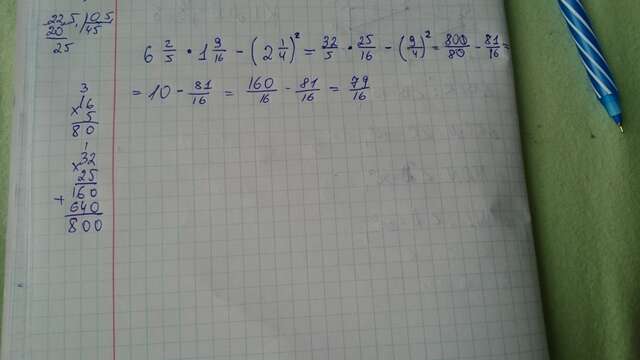 22,5 | 0,5
20 45
25
6 2/5 · 1 9/16 - (2 1/4)² = 32/5 · 25/16 - (9/4)² = 800/80 - 81/16 =
= 10 - 81/16 = 160/16 - 81/16 = 79/16
3
×16
5
80
1
×32
25
+160
640
800